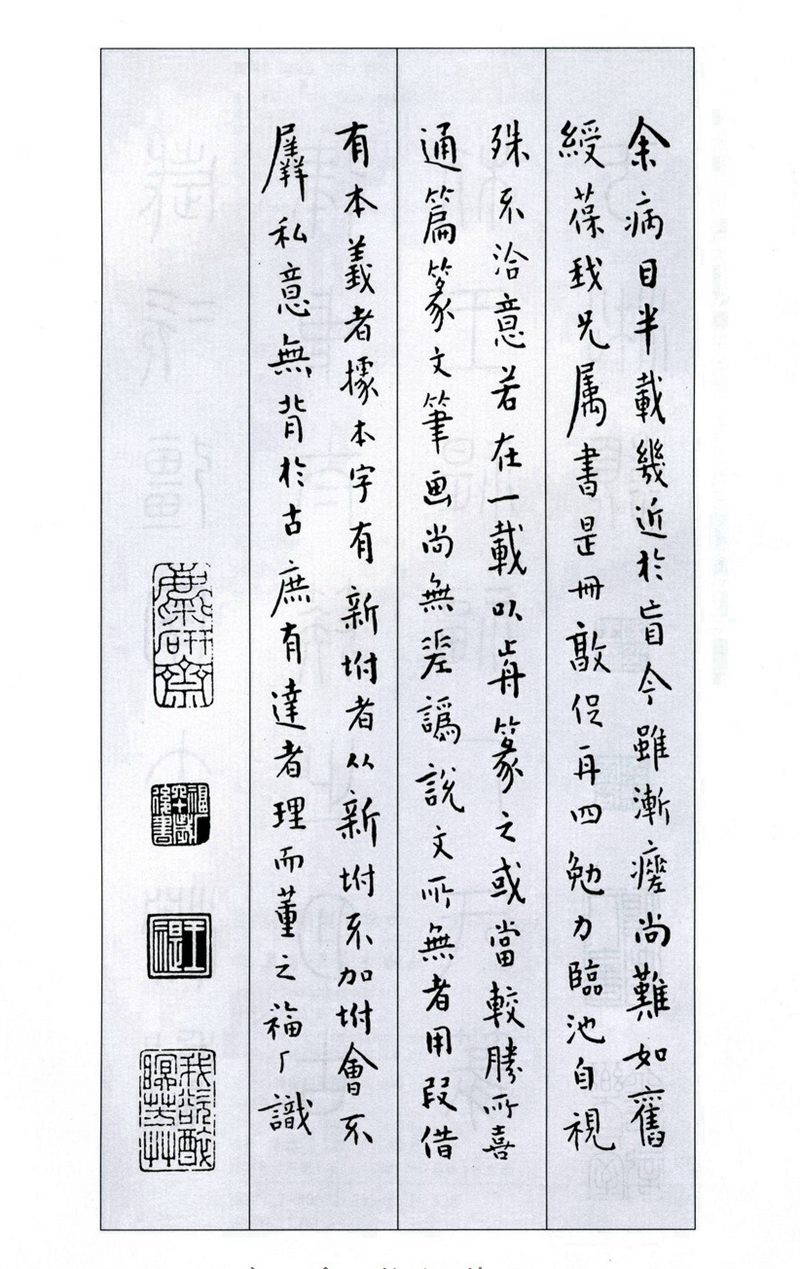 余病目半載幾近於盲今雖漸瘥尚難如舊
綬葆我兄属書是冊敦促再四勉力臨池自視
殊不洽意若在一載以歬篆之或當較勝所喜
通篇篆文筆画尚無差譌說文所無者用叚借
有本義者據本字有新坿者从新坿不加坿會不
羼私意無背於古庶有達者理而董之福厂識
麋研齋
王禔
我欲醉眠芳艸